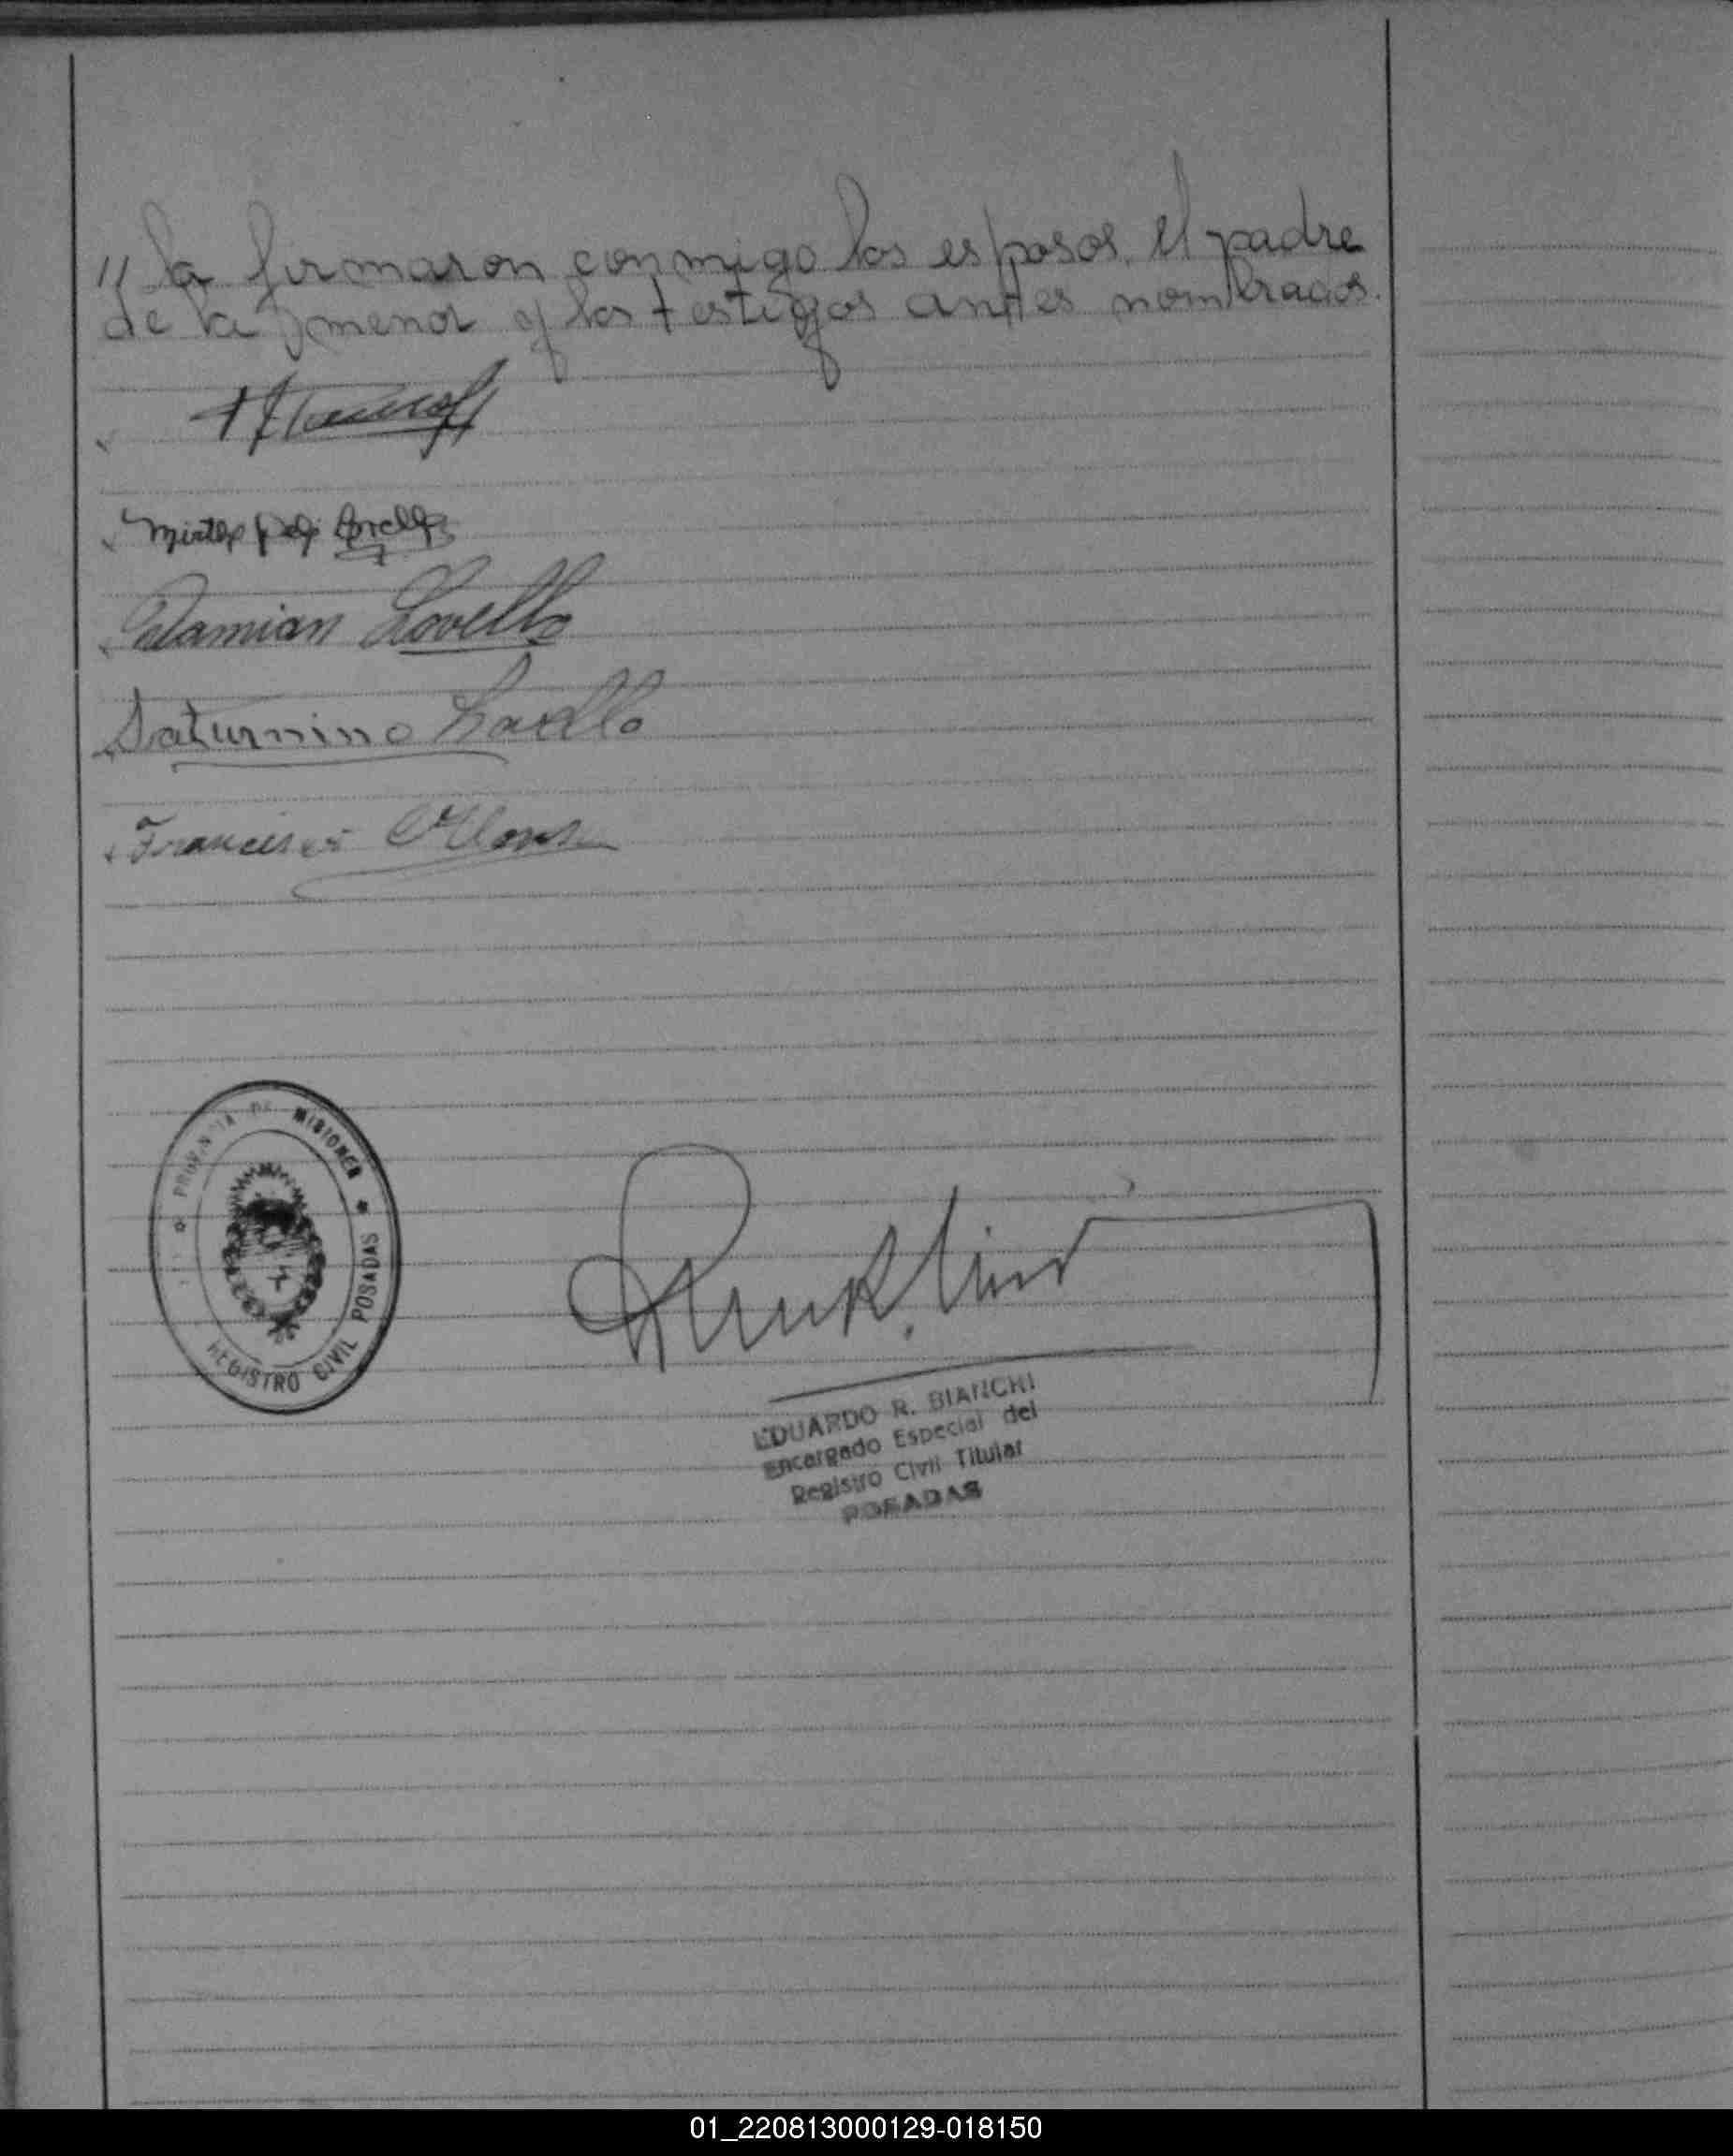 // la firmaron conmigo los esposos, el padre
de la menor y los testigos antes nombrados.
Damian Lovello
Saturnino Lovello
Francisco
PROVINCIA DE MISIONES
REGISTRO CIVIL POSADAS
EDUARDO R. BIANCHI
Encargado Especial del
Registro Civil Titular
POSADAS
01_220813000129-018150